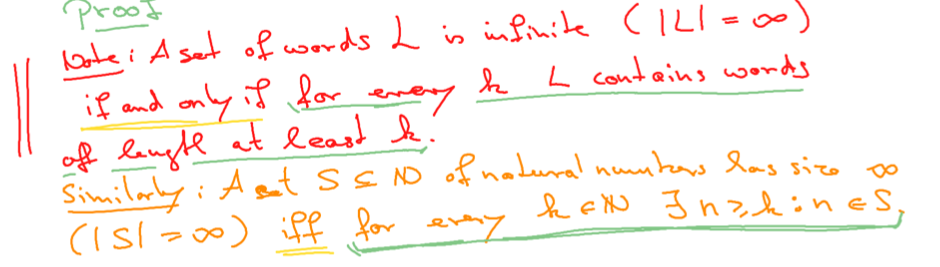 Proof
Note: A set of words L is infinite (|L| = ∞)
if and only if for every k L contains words
off length at least k.
Similarly: A set S ⊆ ℕ of natural numbers has size ∞
(|S| = ∞) iff for every k ∈ ℕ ∃ n ≥ k : n ∈ S,